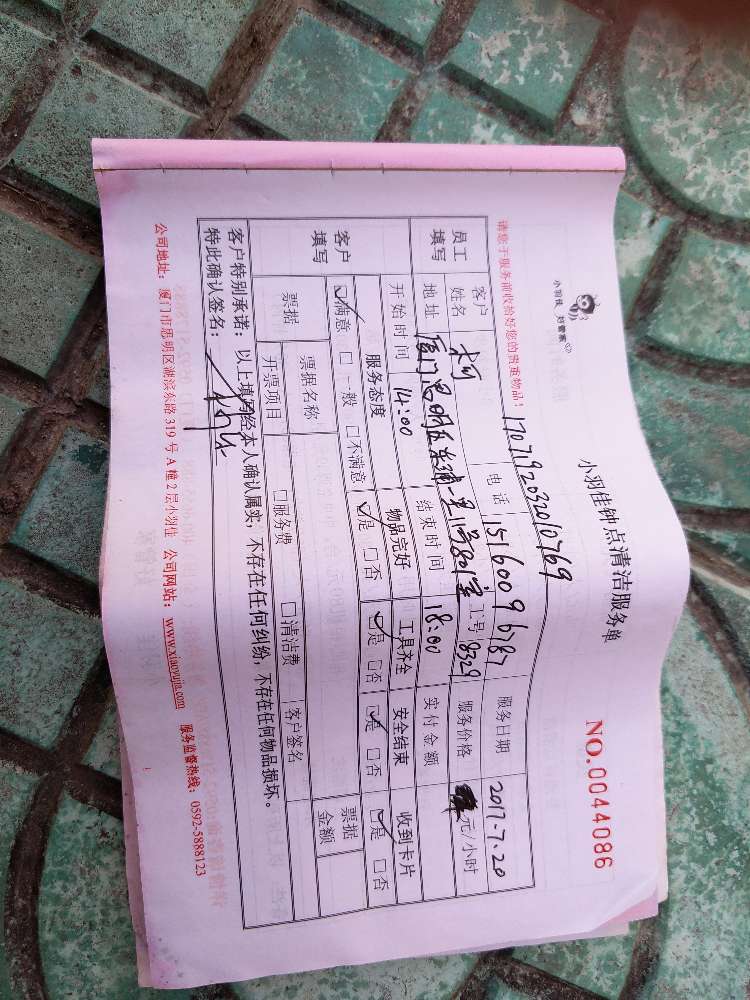 小羽佳 好管家
小羽佳钟点清洁服务单
NO.0044086
请您于服务前收拾好您的贵重物品！ 17071920332010769
员工填写 客户姓名 柯 电话 15160096787 服务日期 2017-7.20
地址 厦门思明区 一里11号801室 工号 8329 服务价格 元/小时
开始时间 14:00 结束时间 18:00 实付金额
客户填写 服务态度 物品完好 工具齐全 安全结束 收到卡片
☑满意 □一般 □不满意 ☑是 □否 ☑是 □否 ☑是 □否 ☑是 □否
票据 票据名称 □服务费 □清洁费 客户签名 票据金额
开票项目
客户特别承诺：以上填写经本人确认属实，不存在任何纠纷，不存在任何物品损坏。
特此确认签名：
公司地址：厦门市思明区湖滨东路319号A幢2层小羽佳 公司网站：www.xiaoyujia.com 服务监督热线：0592-5888123